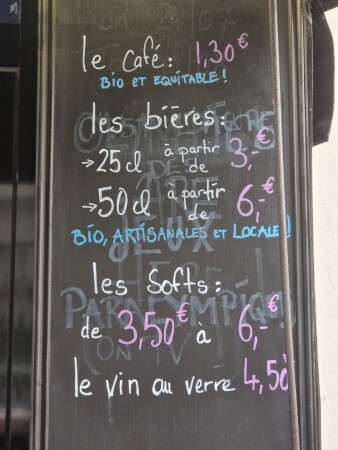 le café: 1,30€
BIO ET EQUITABLE!
les bières:
→25cl à partir de 3,-€
→50cl à partir de 6,-€
BIO, ARTISANALES ET LOCALE!
les Softs:
de 3,50€ à 6,-€
le vin au verre 4,50